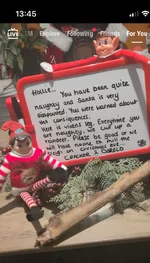 13:45
LIVE Explore Following Friends For You
Hollie... You have been quite
naughty and Santa is very
disappointed. You were warned about
the consequences.
Here is Vixens leg. Everytime you
are naughty, we cut up a
reindeer. Please be good or we
will have none to pull the
sleigh on Christmas eve.
CRACKER & GAROLD